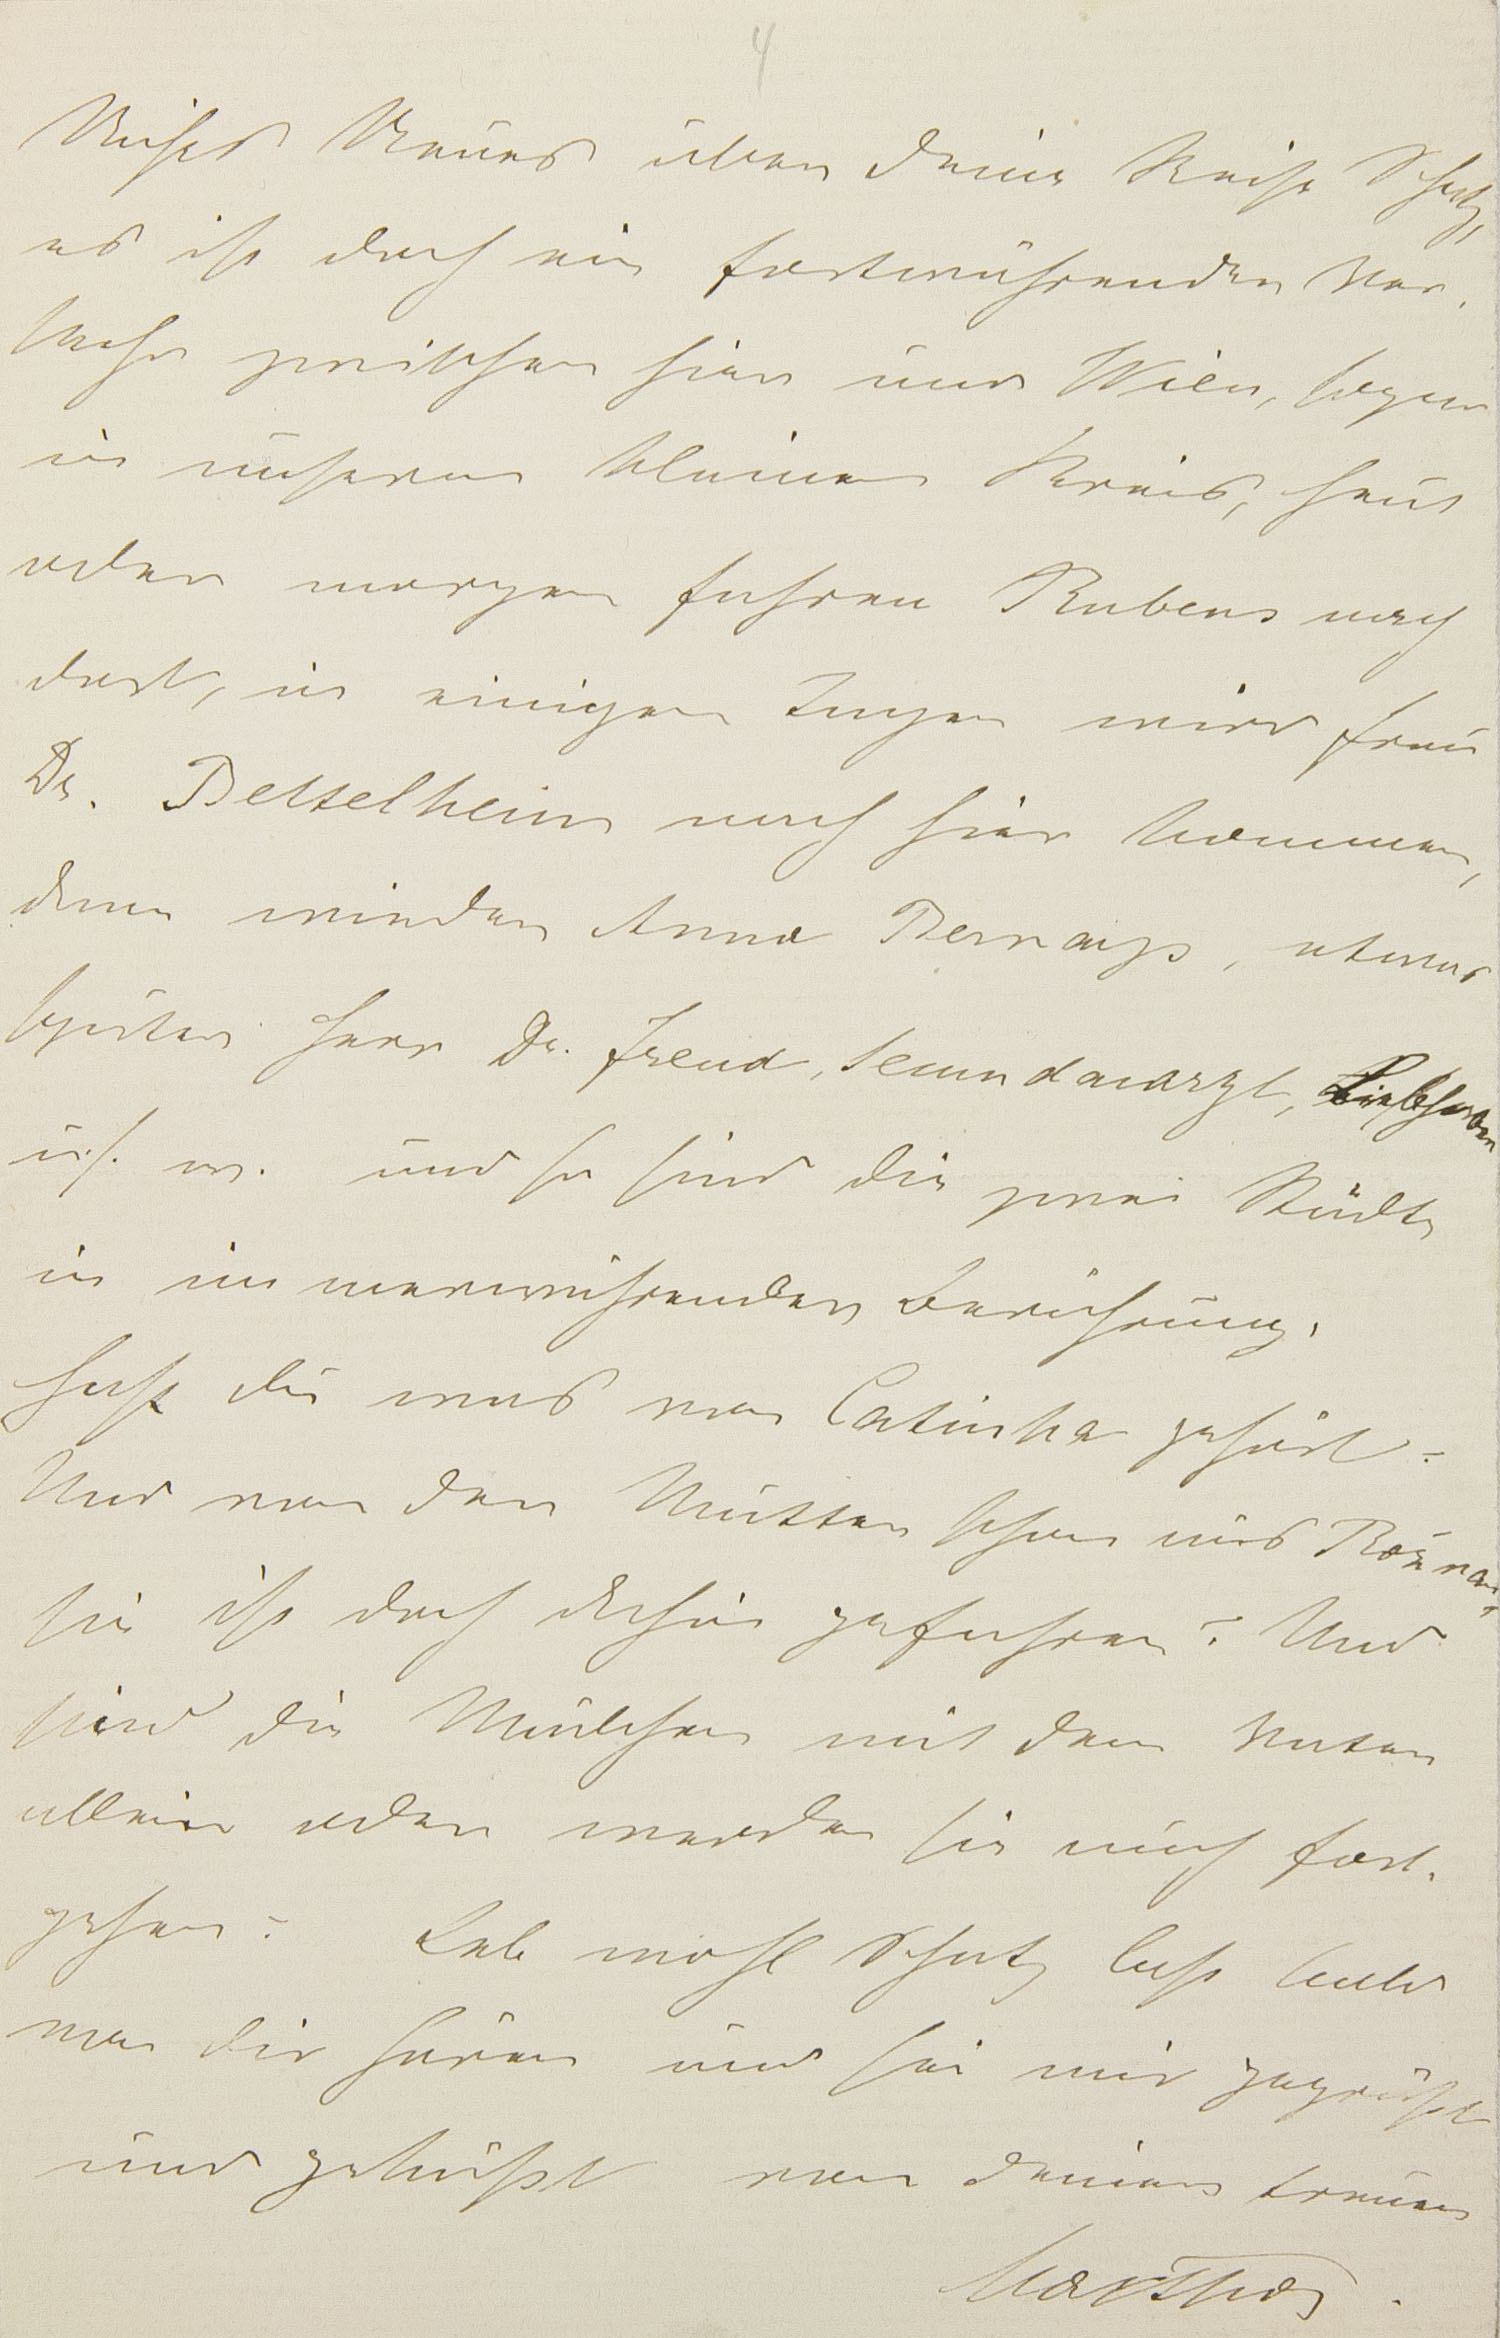 4
Nichts Neues über Deine Reise Schatz,
es ist doch ein fortwährender Ver-
kehr zwischen hier und Wien, sogar
in unserem kleinen Kreis, heut
oder morgen fahren Rubens nach
dort, in einigen Tagen wird Frau
Dr. Bettelheim nach hier kommen,
dann wieder Anna Bernays, etwas
später Herr Dr. Freud, Secundararzt, Liebhaber
u. s. w. und so sind die zwei Städte
in immerwährender Berührung.
Hast Du was von Catinka gehört?
Und von der Mutter schon aus Roznau,
sie ist doch dahin gefahren? Und
sind die Mädchen mit dem Vater
allein oder werden sie auch fort-
gehen? Leb wohl Schatz lass bald
von Dir hören und sei mir gegrüßt
und geküßt von Deiner treuen
Martha.